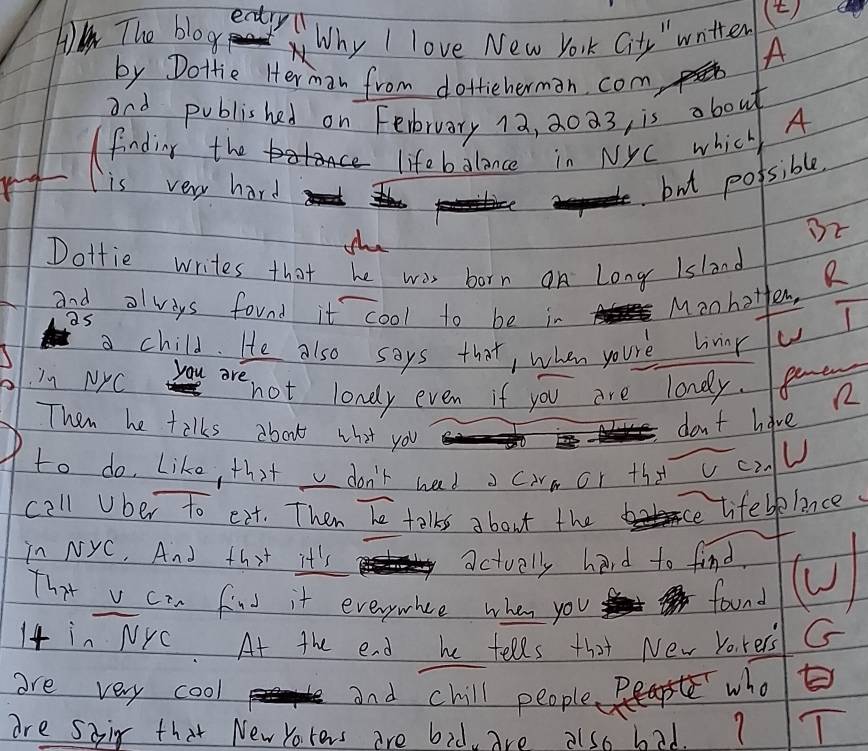 4) The blog entry "Why I love New York City" written (t)
by Dottie Herman from dottieherman.com, A
and published on February 12, 2023, is about
finding the lifebalance in NYC which, A
is very hard but possible.
she Bz
Dottie writes that he was born on Long Island R
and always found it cool to be in Manhatten, T
as a child. He also says that, when you're living W
in NYC you are not lonely even if you are lonely.
Then he talks about what you don't have R
to do. Like, that u don't need a car or that u can W
call Uber to eat. Then he talks about the lifebalance
in NYC. And that it's actually hard to find.
That u can find it everywhee when you found (W)
it in NYC. At the end he tells that New Yorkers G
are very cool and chill people, who
are saying that New Yorkers are bad, are also bad. ? T